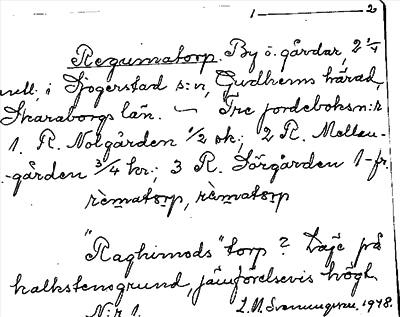 1 — 2
Regumatorp. By o. gårdar, 2 1/4
mtl; i Sjogerstad s:n, Gudhems härad,
Skaraborgs län. — Tre jordeboksn:r
1. R. Nolgården 1/2 sk.; 2 R. Mellan-
-gården 3/4 kr.; 3 R. Sörgården 1 fr.
rèmatorp, rèmatorp
"Raghimods" torp? Läge på
kalkstensgrund, jämförelsevis högt.
N:r 1. 1948.